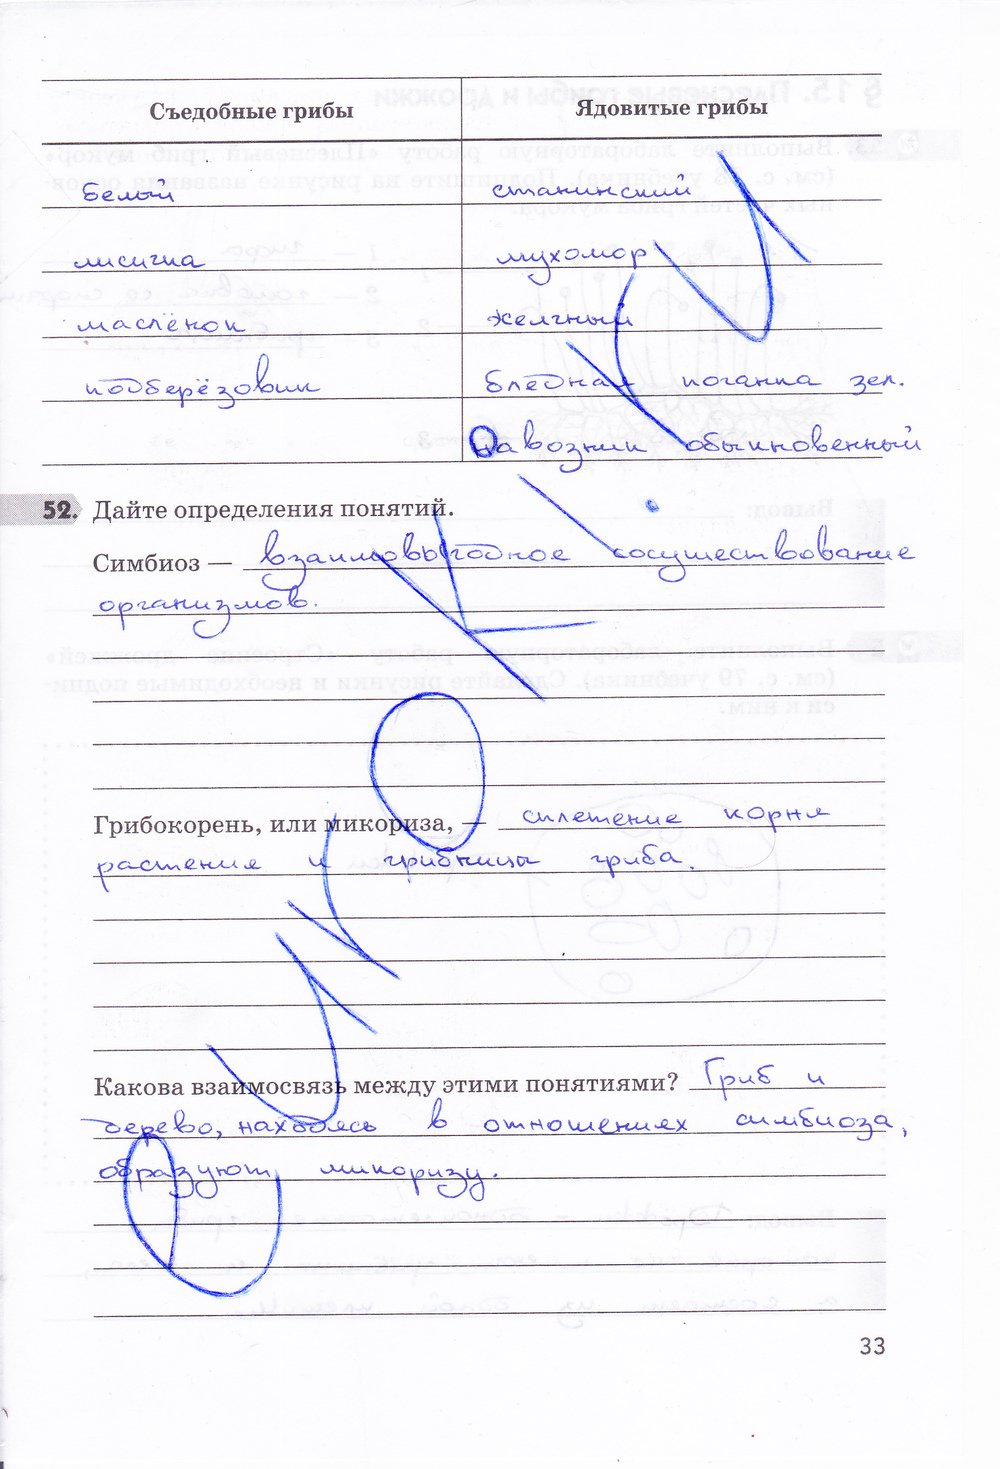 Съедобные грибы Ядовитые грибы
белый сатанинский
лисичка мухомор
маслёнок желчный
подберёзовик бледная поганка зел.
навозник обыкновенный
52. Дайте определения понятий.
Симбиоз — взаимовыгодное сосуществование
организмов.
Грибокорень, или микориза, — сплетение корня
растения и грибницы гриба.
Какова взаимосвязь между этими понятиями? Гриб и
дерево, находясь в отношениях симбиоза,
образуют микоризу.
33